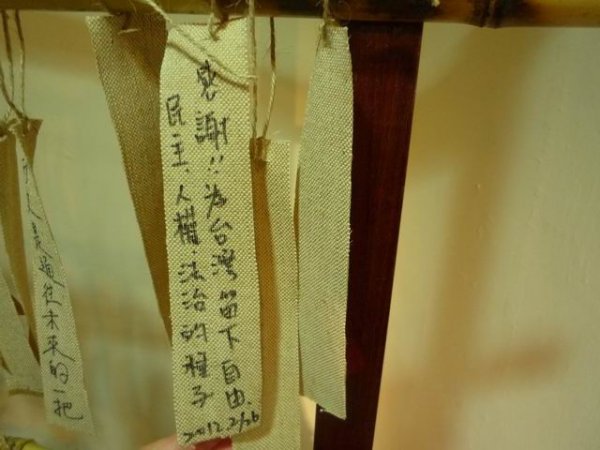 感謝!!為台灣留下自由、
民主、人權、法治的種子
2012.2/26
是通往未來的一把